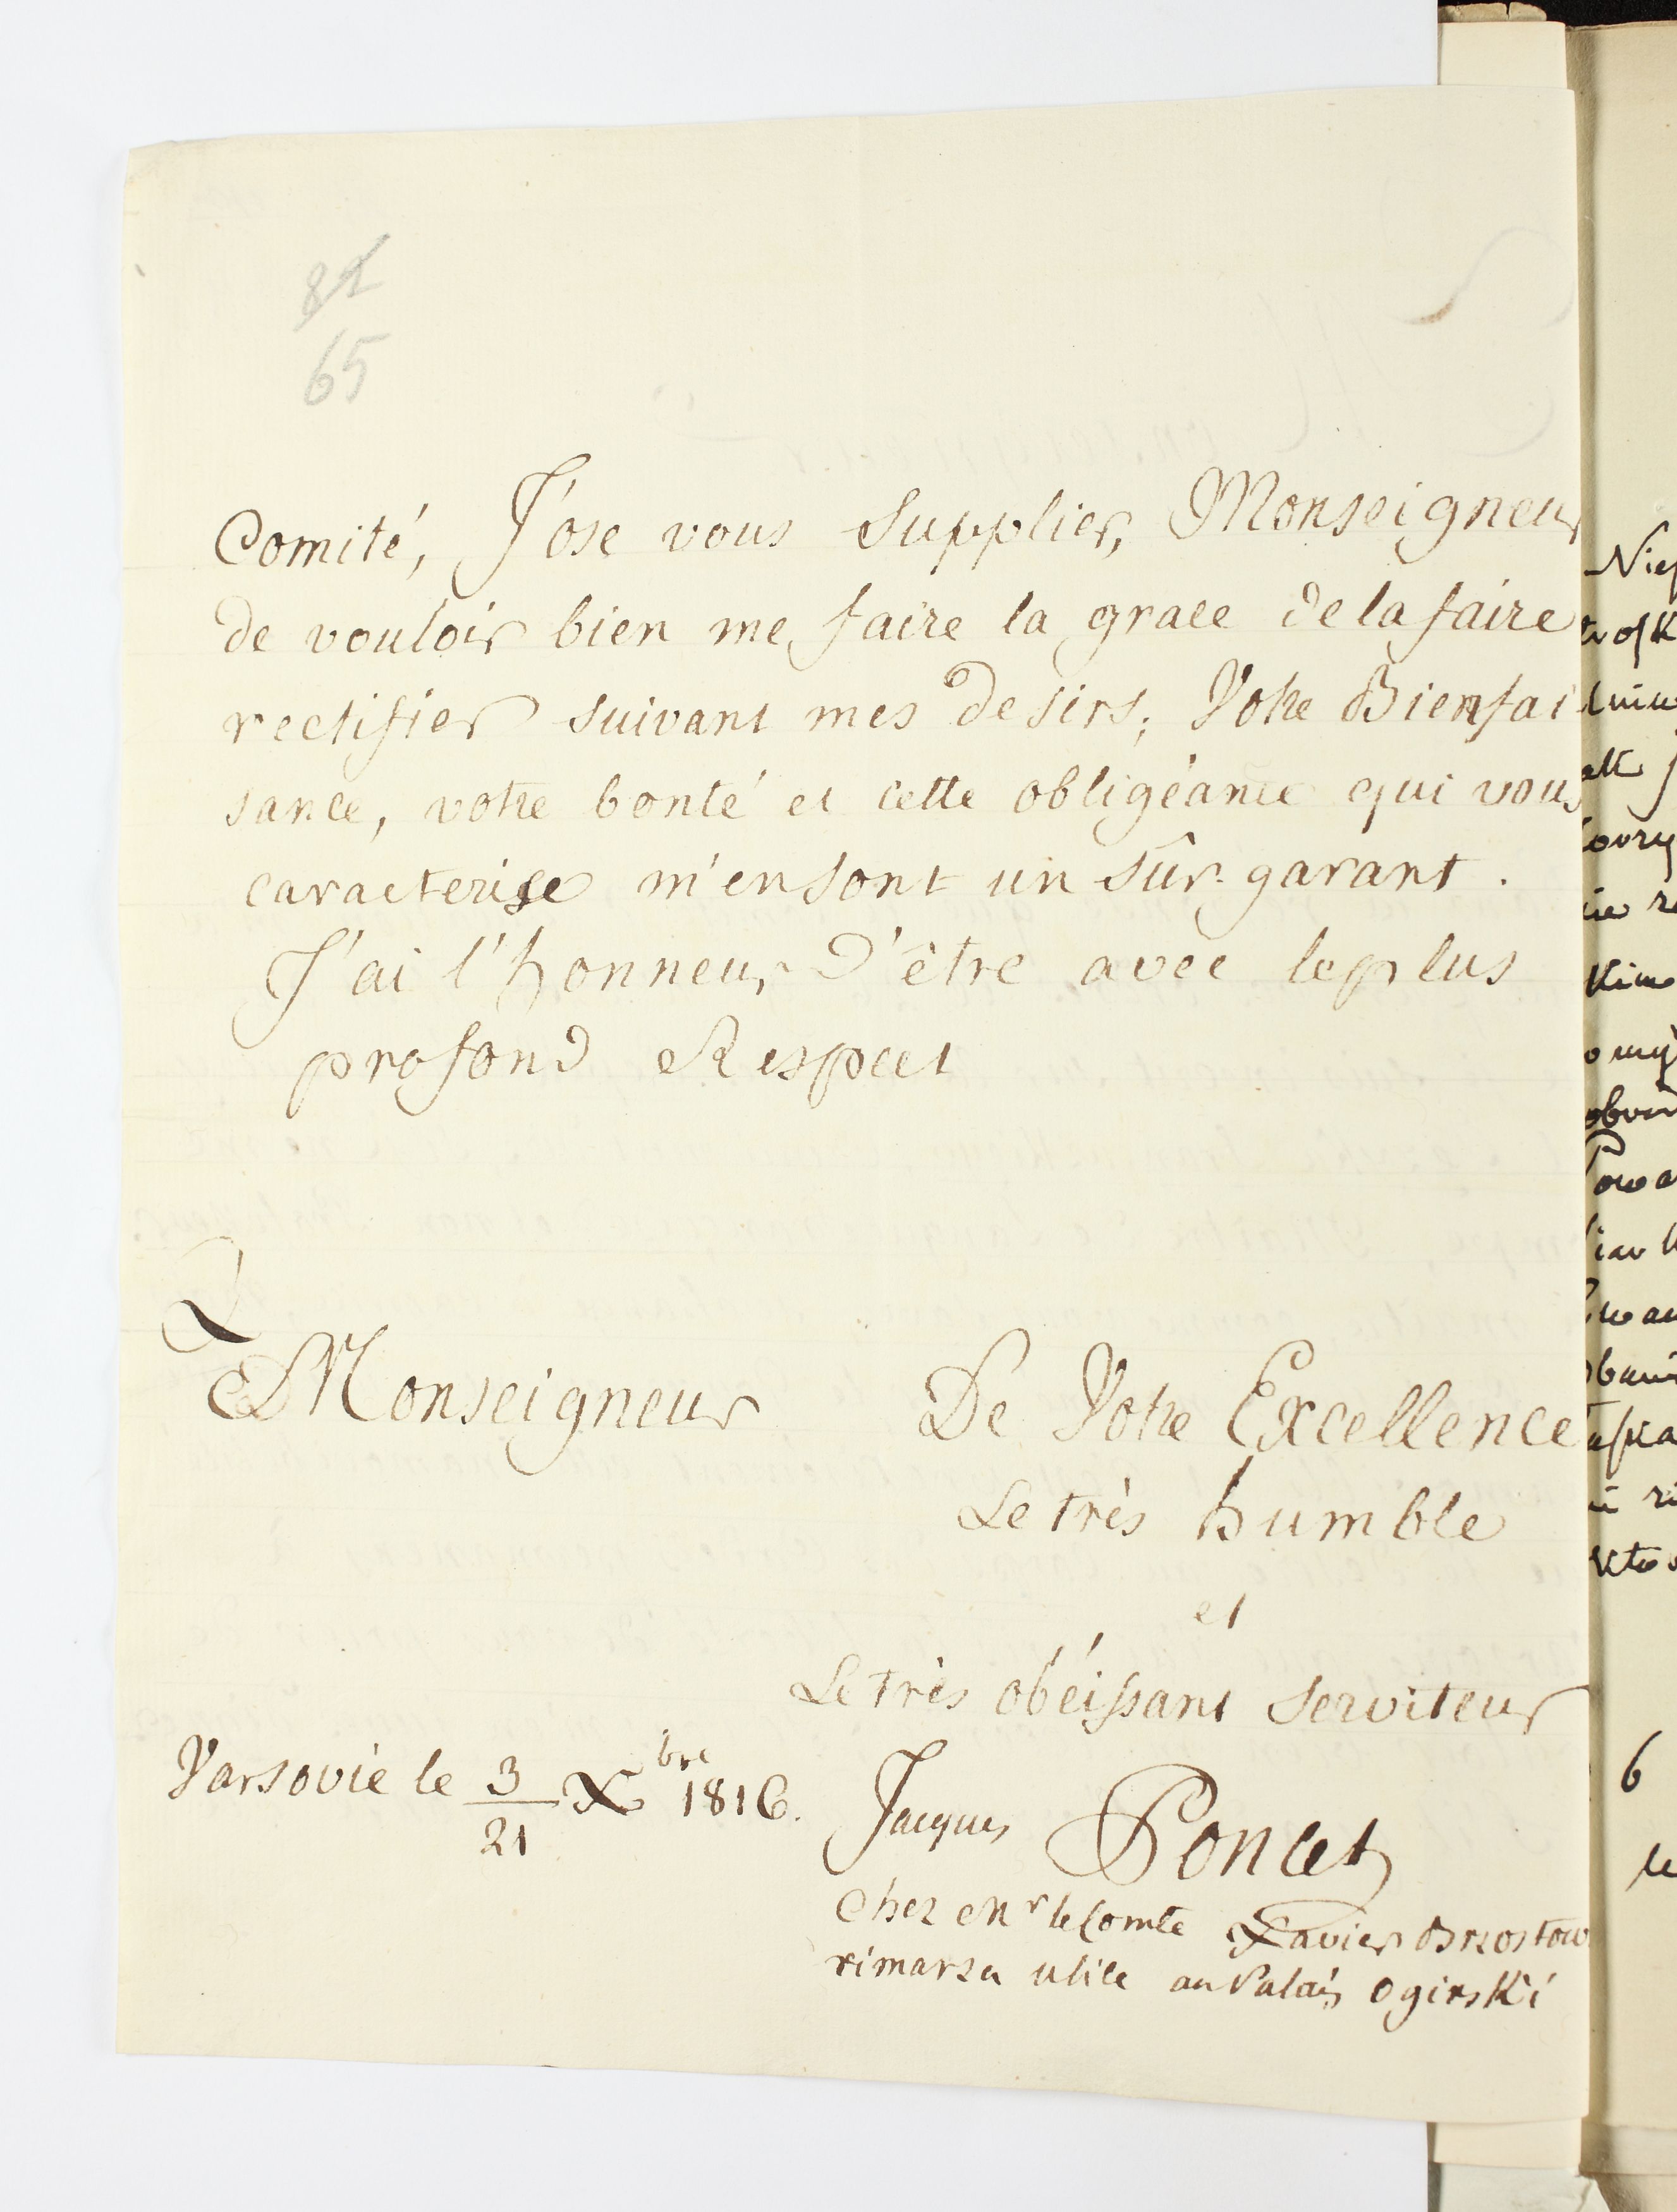 82
65
Comité, J'ose vous Supplier, Monseigneur
de vouloir bien me faire la grace de la faire
rectifier suivant mes desirs; Votre Bienfai
sance, votre bonté et cette obligéance qui vous
caracterise m'en sont un sûr garant.
J'ai l'honneur d'être avec le plus
profond Respect
Monseigneur
De Votre Excellence
Le très humble
et
Le très obéissant Serviteur
Varsovie le 3/21 Xbre 1816.
Jacques Poncet
Chez Mr le Comte Xavier Brzostow
rimarza ulice au Palais Oginski